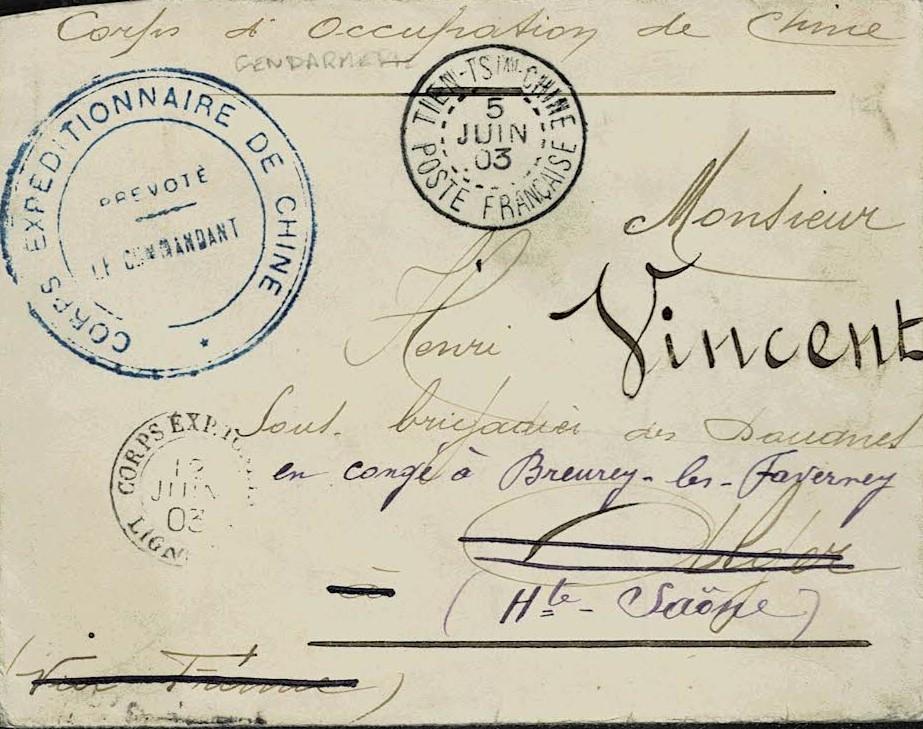 Corps d'Occupation de Chine
GENDARMERIE
TIEN-TSIN-CHINE
5
JUIN
03
POSTE FRANÇAISE
CORPS EXPEDITIONNAIRE DE CHINE
PREVOTÉ
LE COMMANDANT
Monsieur
Henri Vincent
Sous-brigadier des Douanes
CORPS EXP.
JUIN
03
LIGN
en congé à Breurey-les-Faverney
Alger
à
(Hte-Saône)
(Via France)